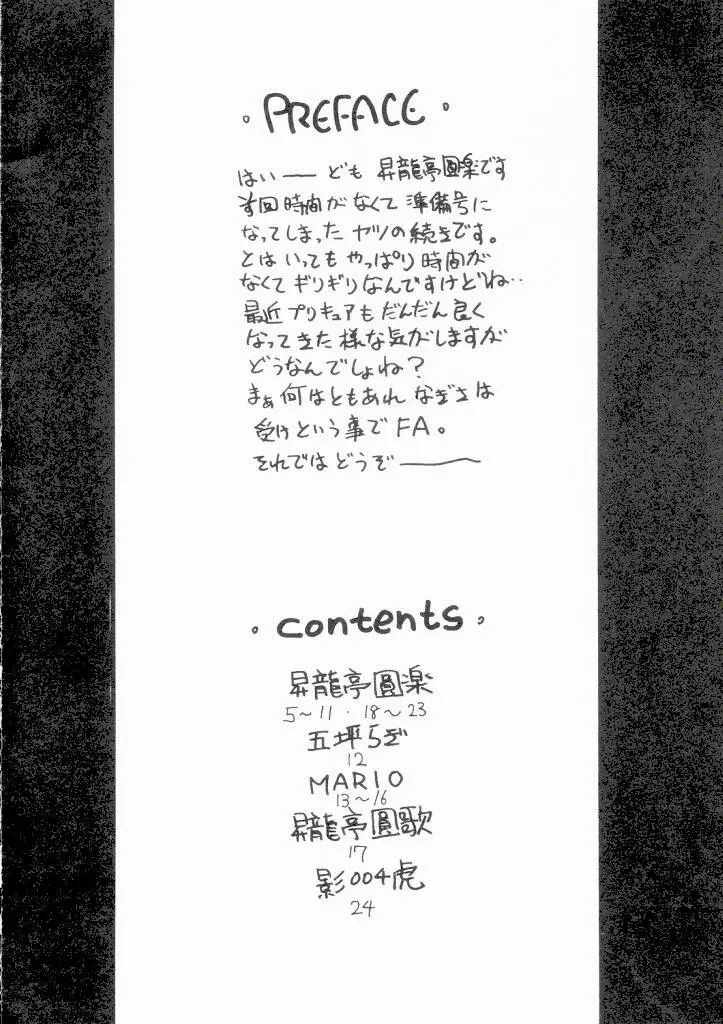 ・PREFACE・
はいーども 昇龍亭圓楽です
前回時間がなくて準備号に
なってしまったヤツの続きです。
とはいってもやっぱり時間が
なくてギリギリなんですけどね‥
最近プリキュアもだんだん良く
なってきた様な気がしますが
どうなんでしょね?
まぁ何はともあれ なぎさは
受けという事でFA。
それではどうぞー
・contents・
昇龍亭圓楽
5〜11・18〜23
五坪らぎ
12
MARIO
13〜16
昇龍亭圓歌
17
影004虎
24